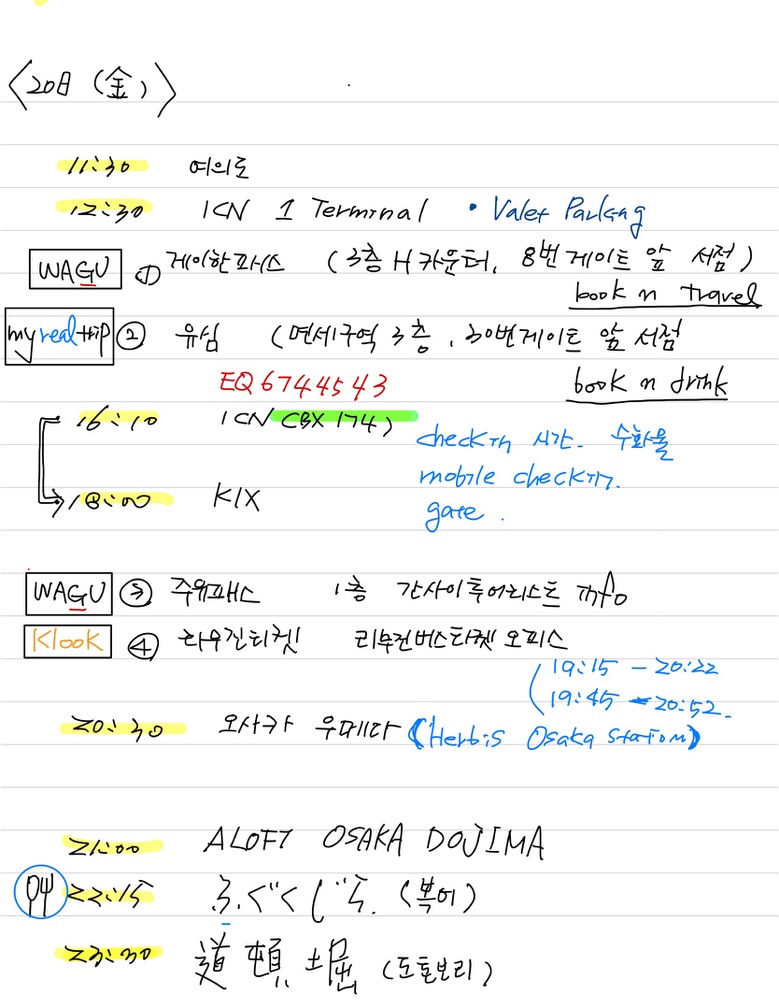 <20日 (金)>
11:30 여의도
12:30 ICN 1 Terminal • Valet Parking
WAGU ① 게이한패스 (3층 H 카운터, 8번 게이트 앞 서점)
book n travel
myrealtrip ② 유심 (면세구역 3층, 30번게이트 앞 서점
book n drink
EQ6744543
16:10 ICN CBX 174)
checkin 시간. 수화물
mobile checkin.
gate.
18:00 KIX
WAGU ③ 주유패스 1층 간사이투어리스트 info
Klook ④ 리무진버스티켓 오피스
19:15 - 20:22
19:45 - 20:52.
20:30 오사카 우메다 (Herbis Osaka Station)
21:00 ALOFT OSAKA DOJIMA
22:15 ふぐくじら. (복어)
23:30 道頓堀 (도톤보리)